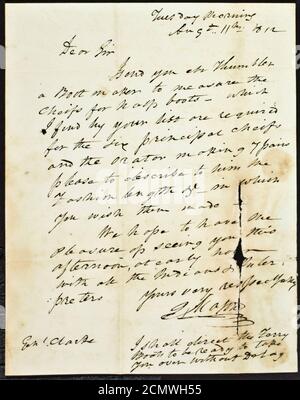 Tuesday Morning
Augst. 11th. 1812
Dear Sir
I send you Mr
a Boot maker to measure the
Cheifs for half boots - which
I find by your list are required
for the Six principal Cheifs
and the Orator making 7 pairs
please to describe to him the
fashion length &c in which
you wish them made
We hope to have the
pleasure of seeing you this
afternoon, at early
with all the Indians &
preters
Yours very
Genl. Clarke
I shall direct the Ferry
Boats to be ready to take
You over without Delay
alamy
Image ID: 2CMWH55
www.alamy.com